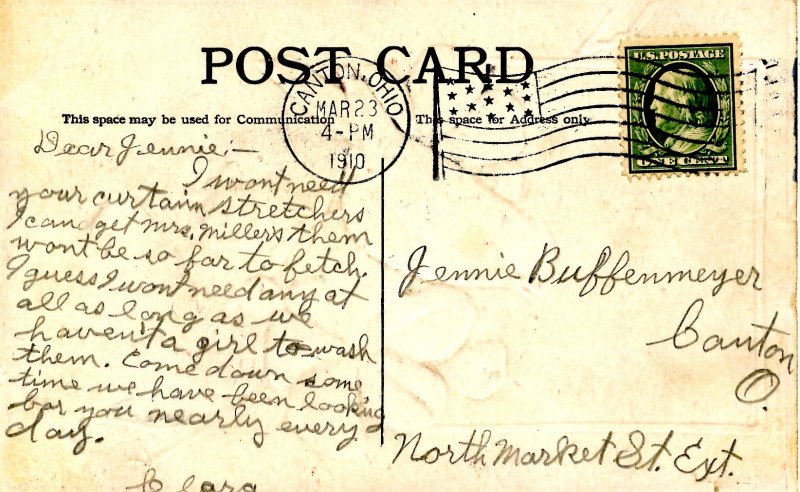 POST CARD
CANTON, OHIO
MAR 23
4-PM
1910
U.S. POSTAGE
ONE CENT
This space may be used for Communication
This space for Address only
Dear Jennie:—
I wont need
your curtain stretchers
I can get Mrs. Millers them
wont be so far to fetch.
I guess I wont need any at
all as long as we
haven't a girl to wash
them. Come down some
time we have been looking
for you nearly every
day.
Clara
Jennie Buffenmeyer
Canton
O.
North Market St. Ext.